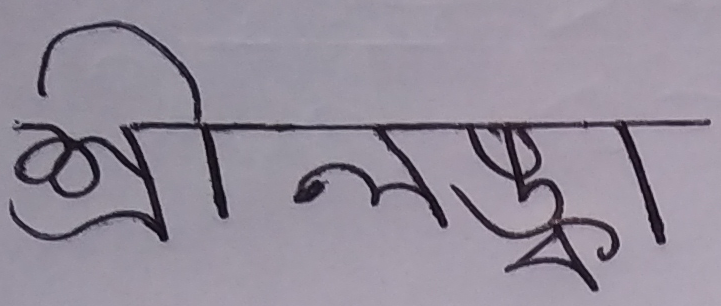 শ্রীলঙ্কা